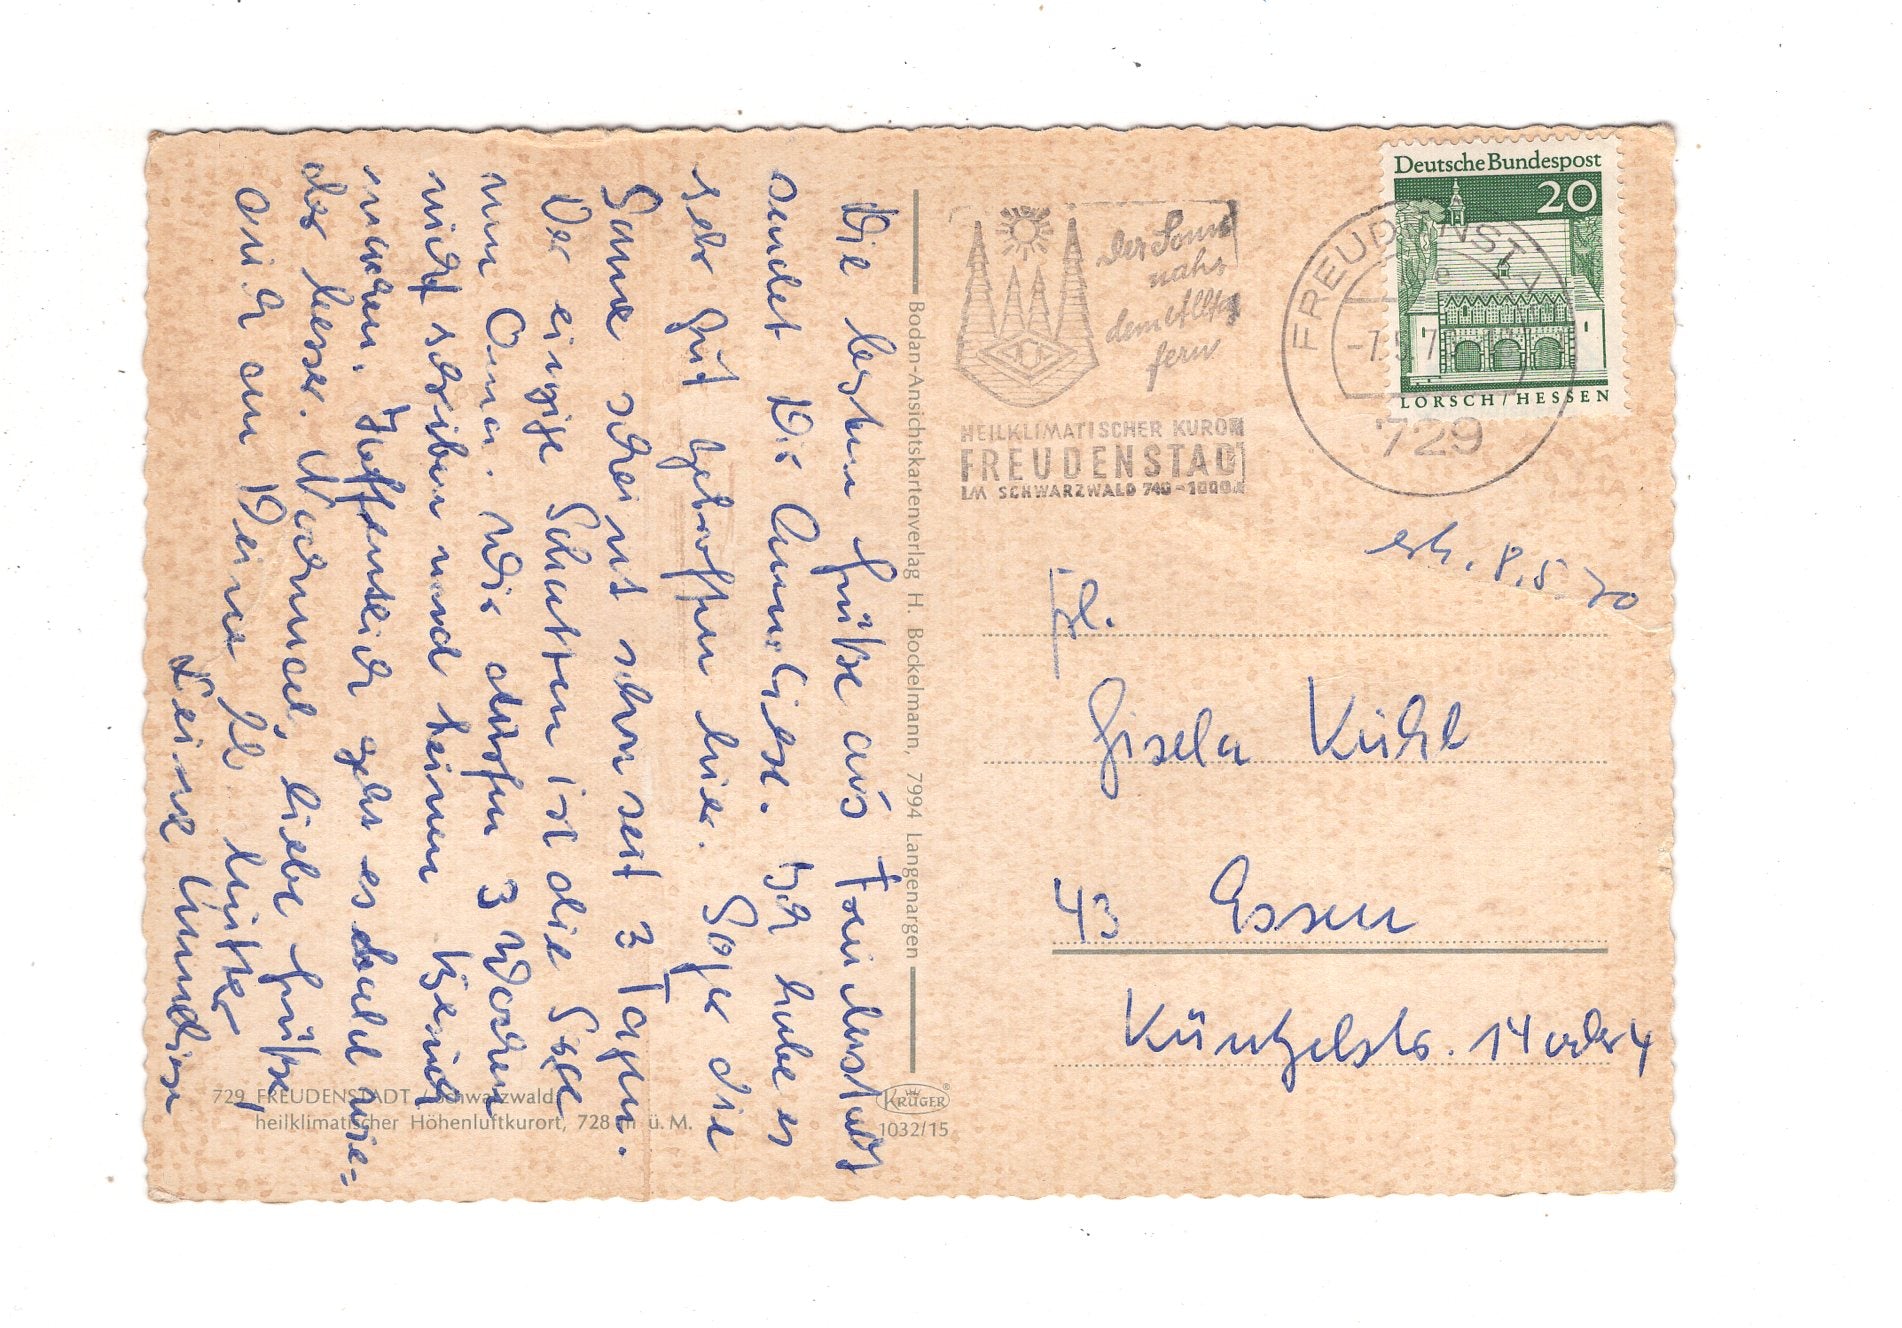 Die besten Grüße aus Freudenstadt
sendet Dir Anneliese. Ich habe es
sehr gut getroffen hier. Sogar die
Sonne scheint schon seit 3 Tagen.
Der einzige Schatten ist die Sache
mit Oma. Wir dürfen 3 Wochen
nicht schreiben und keinen Besuch
machen. Hoffentlich geht es bald wie=
der besser. Nochmal, liebe Grüße,
auch an Deine lb Mutter
Deine Anneliese
729 FREUDENSTADT Schwarzwald
heilklimatischer Höhenluftkurort, 728 m ü. M.
Bodan-Ansichtskartenverlag H. Bockelmann, 7994 Langenargen
KRÜGER
1032/15
der Sonne
nahe
dem Alltag
fern
HEILKLIMATISCHER KURORT
FREUDENSTADT
IM SCHWARZWALD 740-1000
FREUDENSTADT
-7.5.7
729
Deutsche Bundespost
20
LORSCH/HESSEN
erh. 8.5.70
Frl.
Gisela Kühl
43 Essen
Küntzelstr. 14 oder 4